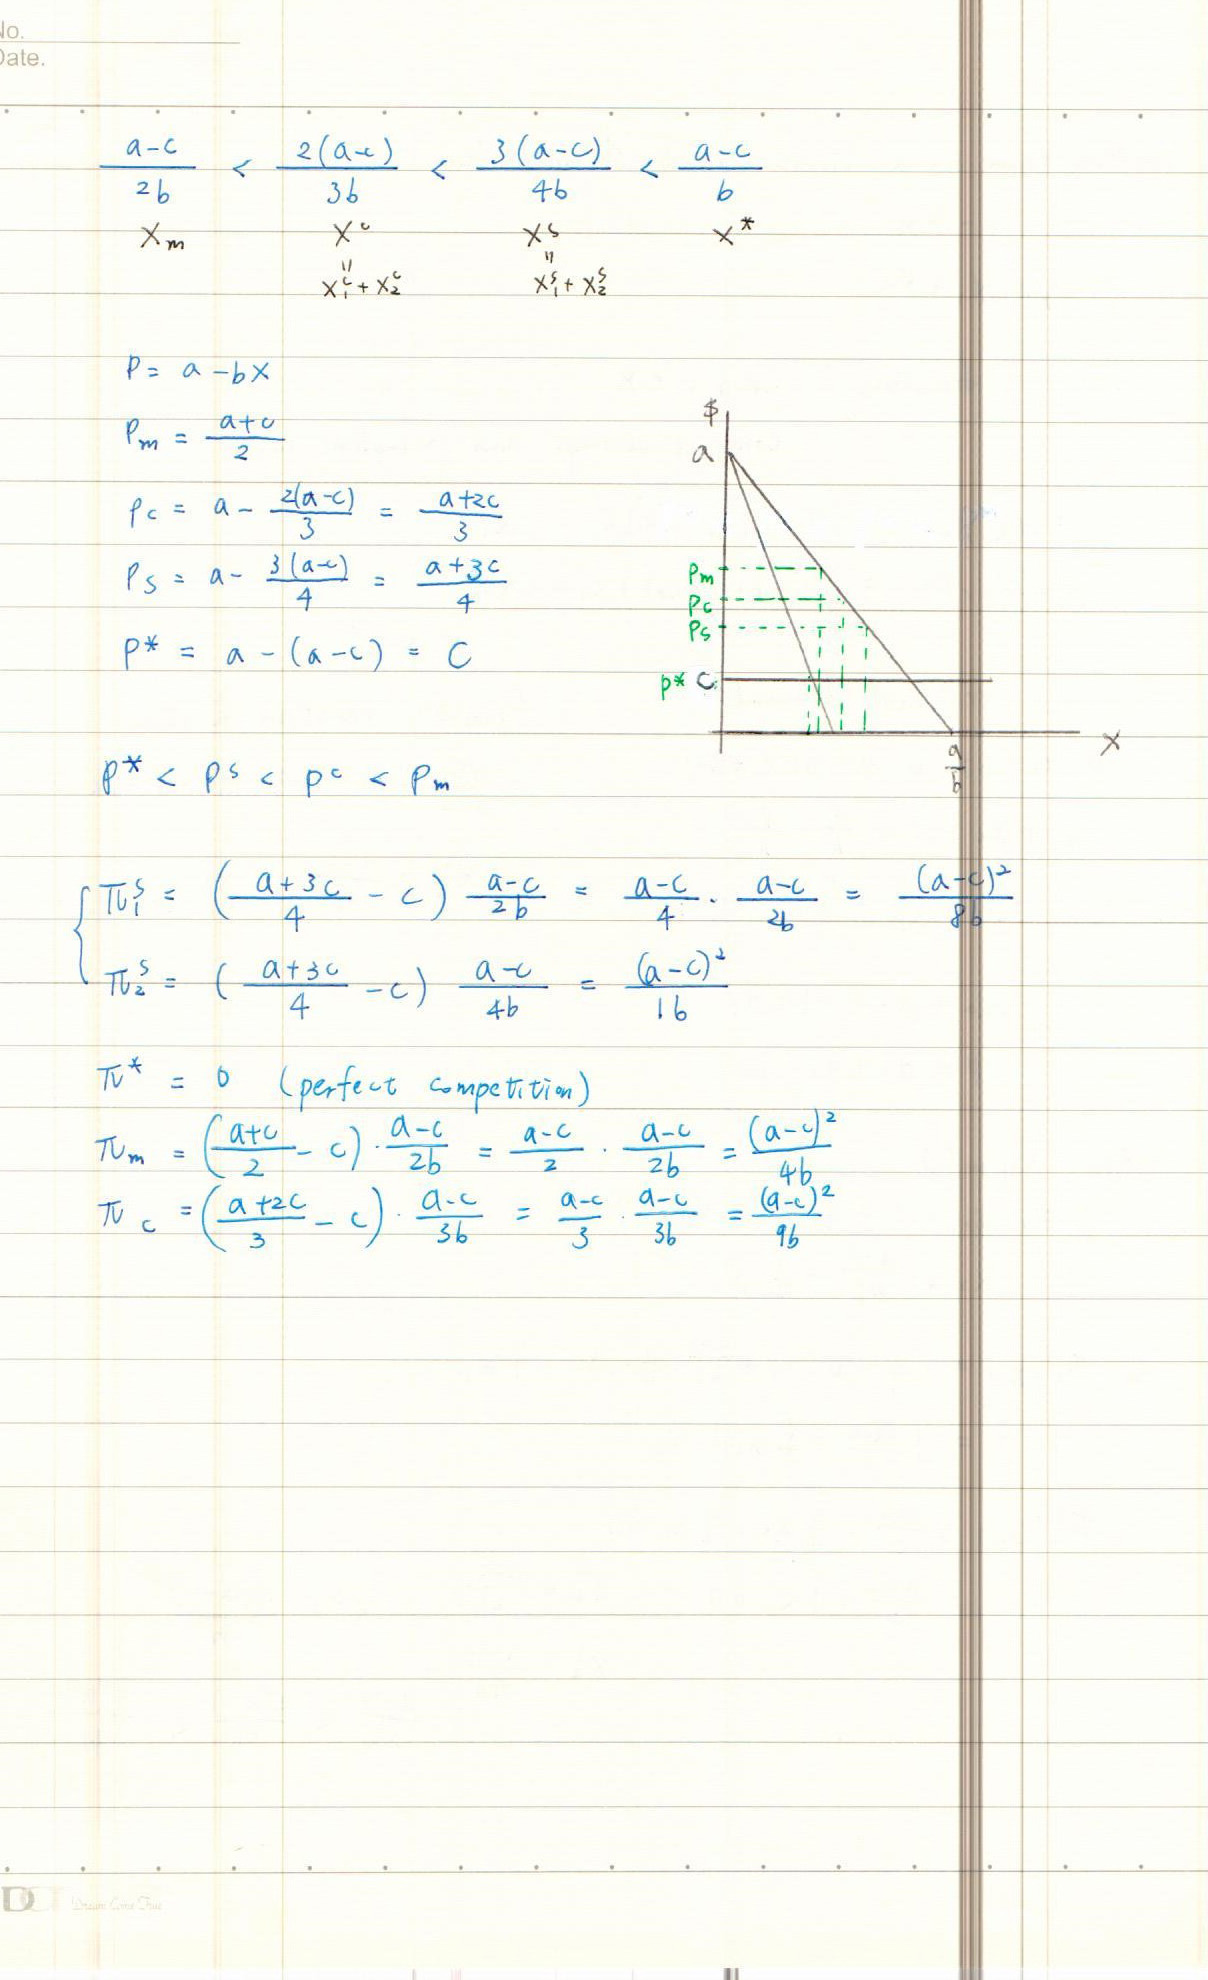 No.
Date.
(a-c)/2b < 2(a-c)/3b < 3(a-c)/4b < (a-c)/b
Xm X^c X^s X*
= =
X₁^c + X₂^c X₁^s + X₂^s
P = a - bX
Pm = (a+c)/2
Pc = a - 2(a-c)/3 = (a+2c)/3
Ps = a - 3(a-c)/4 = (a+3c)/4
P* = a - (a-c) = C
$
a
Pm
Pc
Ps
P* C
X
a/b
P* < P^s < P^c < Pm
π₁^s = ((a+3c)/4 - c) (a-c)/2b = (a-c)/4 · (a-c)/2b = (a-c)²/8b
π₂^s = ((a+3c)/4 - c) (a-c)/4b = (a-c)²/16
π* = 0 (perfect competition)
πm = ((a+c)/2 - c) · (a-c)/2b = (a-c)/2 · (a-c)/2b = (a-c)²/4b
πc = ((a+2c)/3 - c) · (a-c)/3b = (a-c)/3 · (a-c)/3b = (a-c)²/9b
Dream Come True